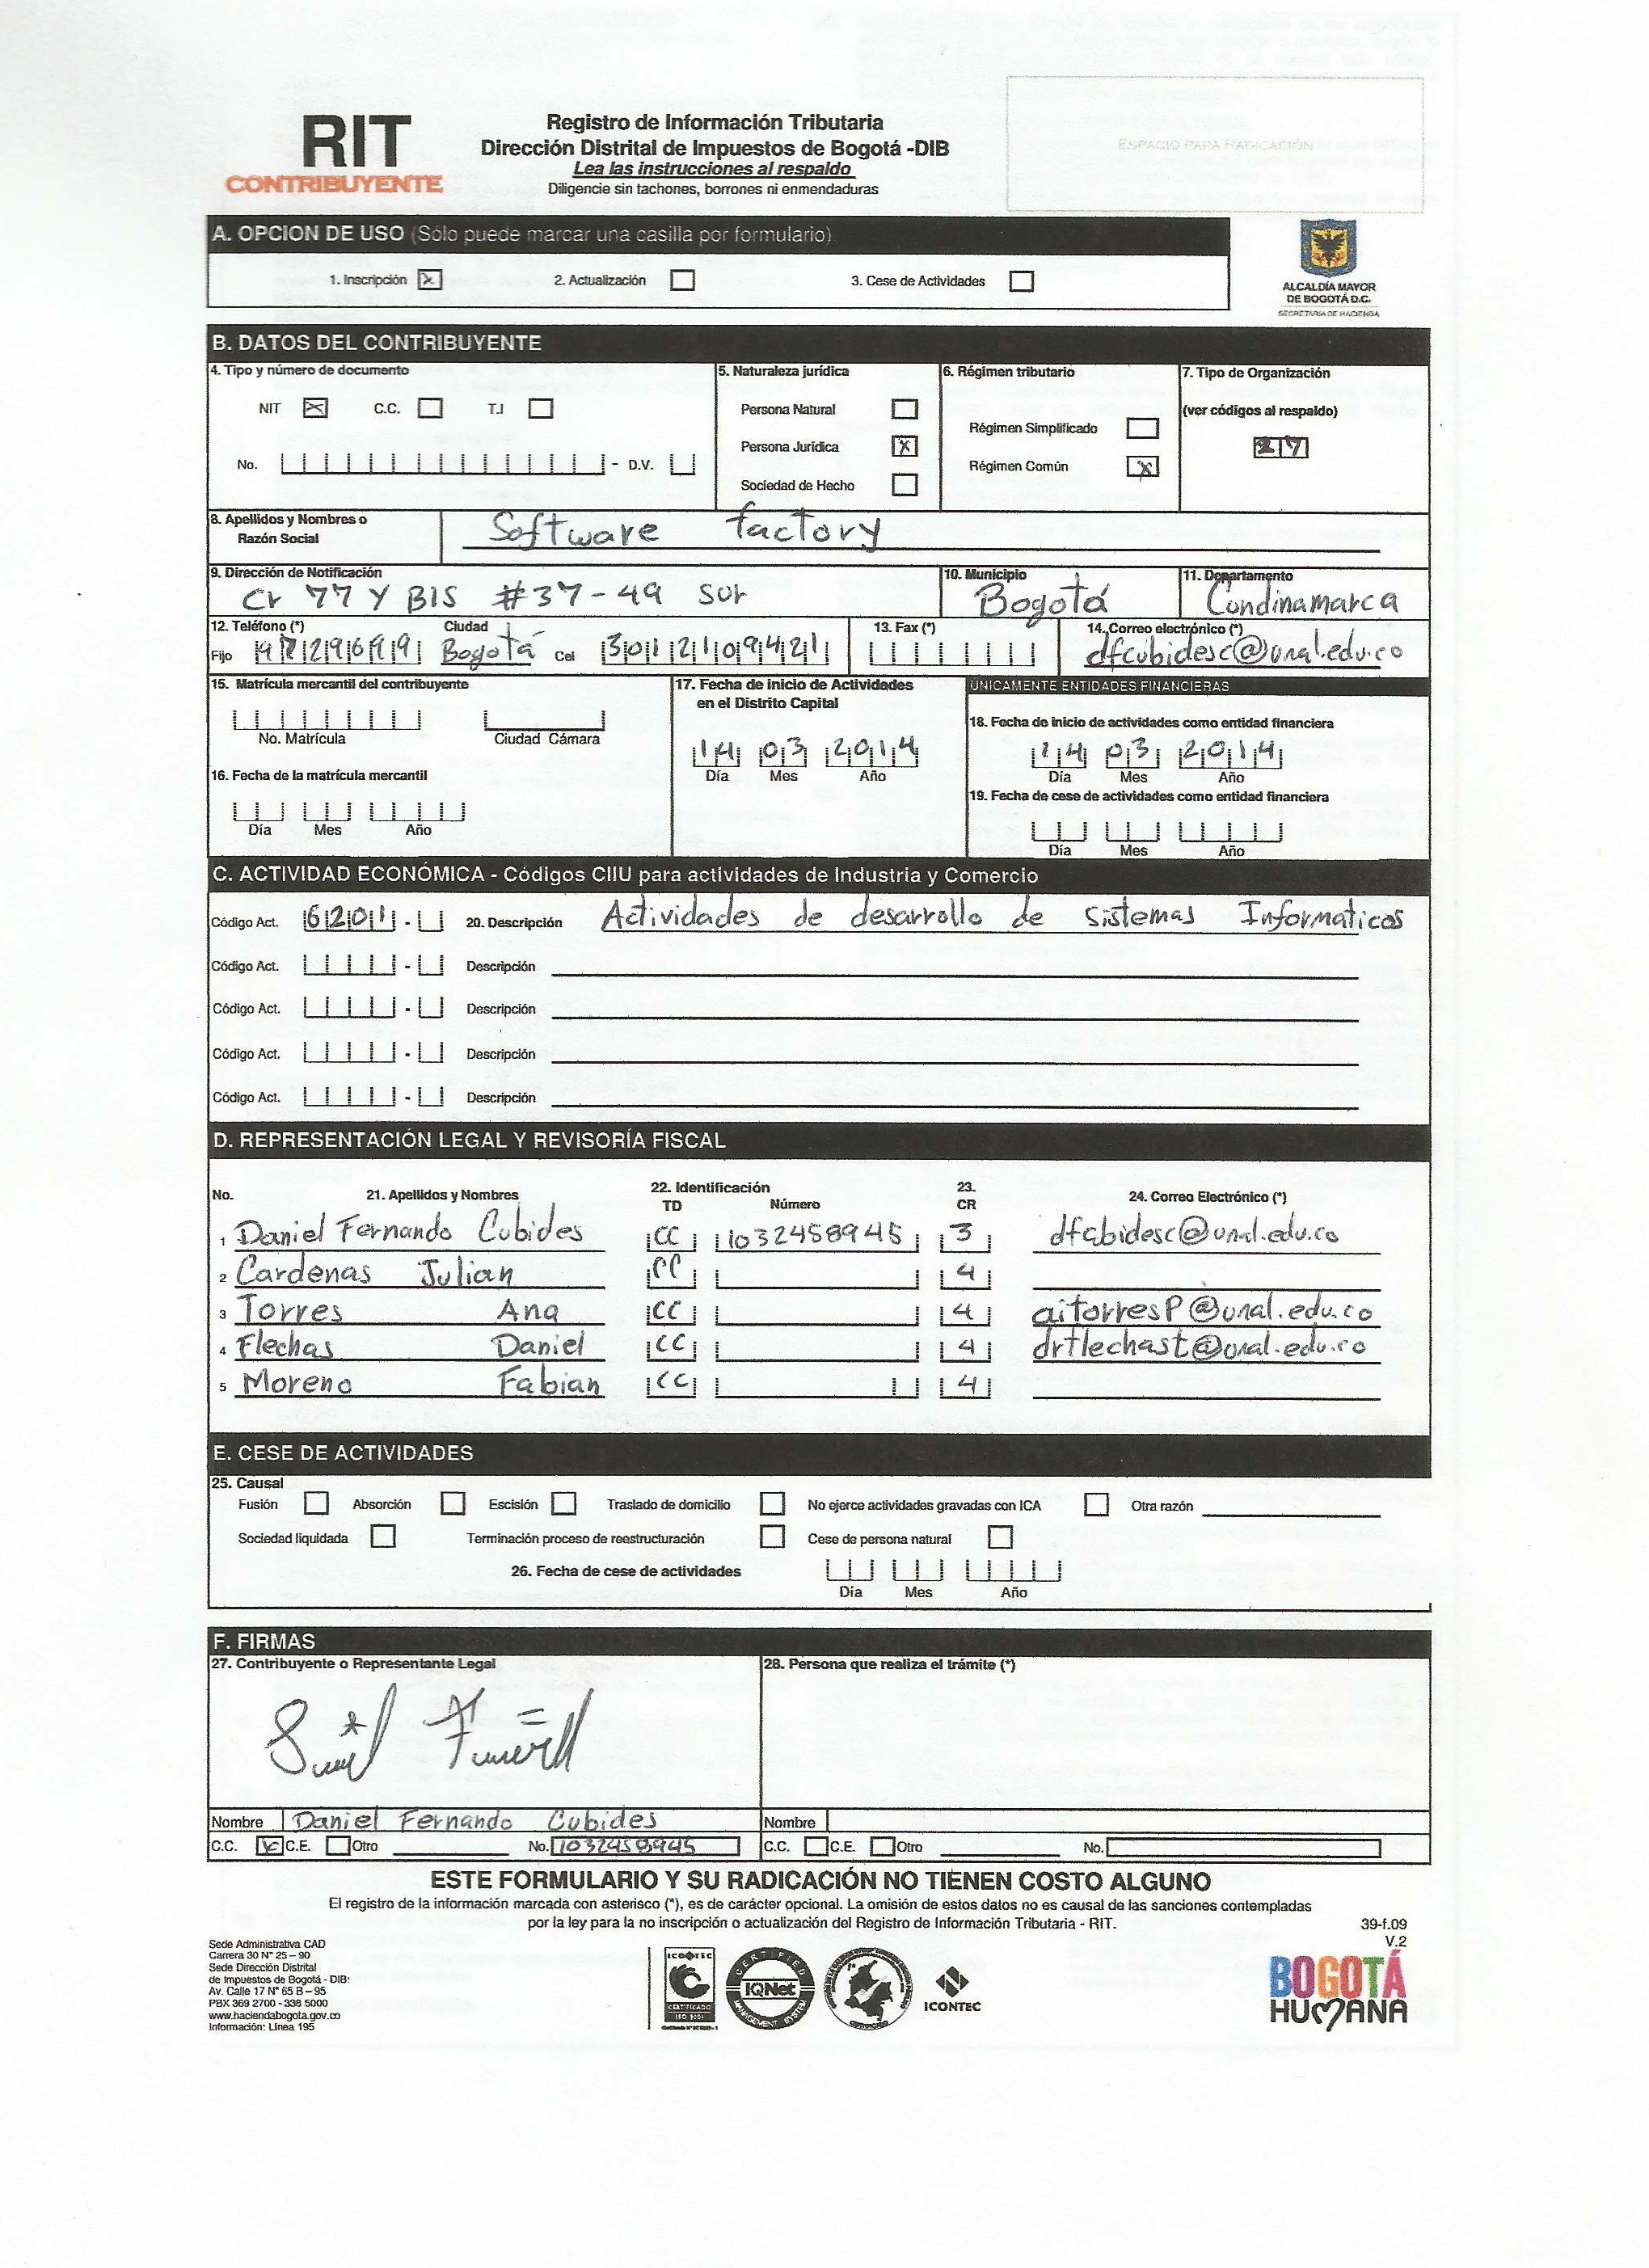 RIT
CONTRIBUYENTE
Registro de Información Tributaria
Dirección Distrital de Impuestos de Bogotá -DIB
Lea las instrucciones al respaldo
Diligencie sin tachones, borrones ni enmendaduras
ESPACIO PARA RADICACIÓN
A. OPCION DE USO (Sólo puede marcar una casilla por formulario)
1. Inscripción X 2. Actualización 3. Cese de Actividades
ALCALDÍA MAYOR
DE BOGOTÁ D.C.
SECRETARIA DE HACIENDA
B. DATOS DEL CONTRIBUYENTE
4. Tipo y número de documento
NIT X C.C. T.I
No. - D.V.
5. Naturaleza jurídica
Persona Natural
Persona Jurídica X
Sociedad de Hecho
6. Régimen tributario
Régimen Simplificado
Régimen Común X
7. Tipo de Organización
(ver códigos al respaldo)
27
8. Apellidos y Nombres o
Razón Social
Software factory
9. Dirección de Notificación
Cr 77 Y BIS #37-49 sur
10. Municipio
Bogotá
11. Departamento
Condinamarca
12. Teléfono (*) Ciudad
Fijo Bogotá Cel 3012109421
13. Fax (*)
14. Correo electrónico (*)
dfcubidesc@unal.edu.co
15. Matrícula mercantil del contribuyente
No. Matrícula Ciudad Cámara
16. Fecha de la matrícula mercantil
Día Mes Año
17. Fecha de inicio de Actividades
en el Distrito Capital
14 03 2014
Día Mes Año
UNICAMENTE ENTIDADES FINANCIERAS
18. Fecha de inicio de actividades como entidad financiera
14 03 2014
Día Mes Año
19. Fecha de cese de actividades como entidad financiera
Día Mes Año
C. ACTIVIDAD ECONÓMICA - Códigos CIIU para actividades de Industria y Comercio
Código Act. 6201 - 20. Descripción Actividades de desarrollo de Sistemas Informaticos
Código Act. - Descripción
Código Act. - Descripción
Código Act. - Descripción
Código Act. - Descripción
D. REPRESENTACIÓN LEGAL Y REVISORÍA FISCAL
No. 21. Apellidos y Nombres 22. Identificación 23. 24. Correo Electrónico (*)
TD Número CR
1 Daniel Fernando Cubides CC 1032458945 3 dfcubidesc@unal.edu.co
2 Cardenas Julian CC 4
3 Torres Ana CC 4 aitorresP@unal.edu.co
4 Flechas Daniel CC 4 drflechast@unal.edu.co
5 Moreno Fabian CC 4
E. CESE DE ACTIVIDADES
25. Causal
Fusión Absorción Escisión Traslado de domicilio No ejerce actividades gravadas con ICA Otra razón
Sociedad liquidada Terminación proceso de reestructuración Cese de persona natural
26. Fecha de cese de actividades
Día Mes Año
F. FIRMAS
27. Contribuyente o Representante Legal
28. Persona que realiza el trámite (*)
Nombre Daniel Fernando Cubides
Nombre
C.C. X C.E. Otro No. 1032458945
C.C. C.E. Otro No.
ESTE FORMULARIO Y SU RADICACIÓN NO TIENEN COSTO ALGUNO
El registro de la información marcada con asterisco (*), es de carácter opcional. La omisión de estos datos no es causal de las sanciones contempladas
por la ley para la no inscripción o actualización del Registro de Información Tributaria - RIT.
39-f.09
V.2
Sede Administrativa CAD
Carrera 30 N° 25 – 90
Sede Dirección Distrital
de Impuestos de Bogotá - DIB:
Av. Calle 17 N° 65 B – 95
PBX 369 2700 - 338 5000
www.haciendabogota.gov.co
Información: Línea 195
icontec
CERTIFICADO
ISO 9001
CERTIFIED
IQNet
MANAGEMENT SYSTEM
ICONTEC
BOGOTÁ
HUMANA